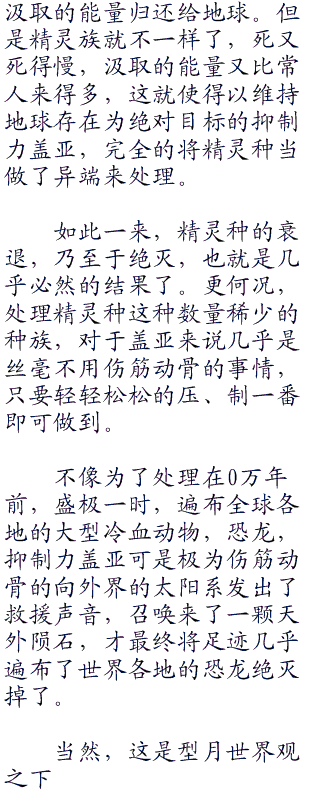 汲取的能量归还给地球。但
是精灵族就不一样了，死又
死得慢，汲取的能量又比常
人来得多，这就使得以维持
地球存在为绝对目标的抑制
力盖亚，完全的将精灵种当
做了异端来处理。
如此一来，精灵种的衰
退，乃至于绝灭，也就是几
乎必然的结果了。更何况，
处理精灵种这种数量稀少的
种族，对于盖亚来说几乎是
丝毫不用伤筋动骨的事情，
只要轻轻松松的压、制一番
即可做到。
不像为了处理在0万年
前，盛极一时，遍布全球各
地的大型冷血动物，恐龙，
抑制力盖亚可是极为伤筋动
骨的向外界的太阳系发出了
救援声音，召唤来了一颗天
外陨石，才最终将足迹几乎
遍布了世界各地的恐龙绝灭
掉了。
当然，这是型月世界观
之下